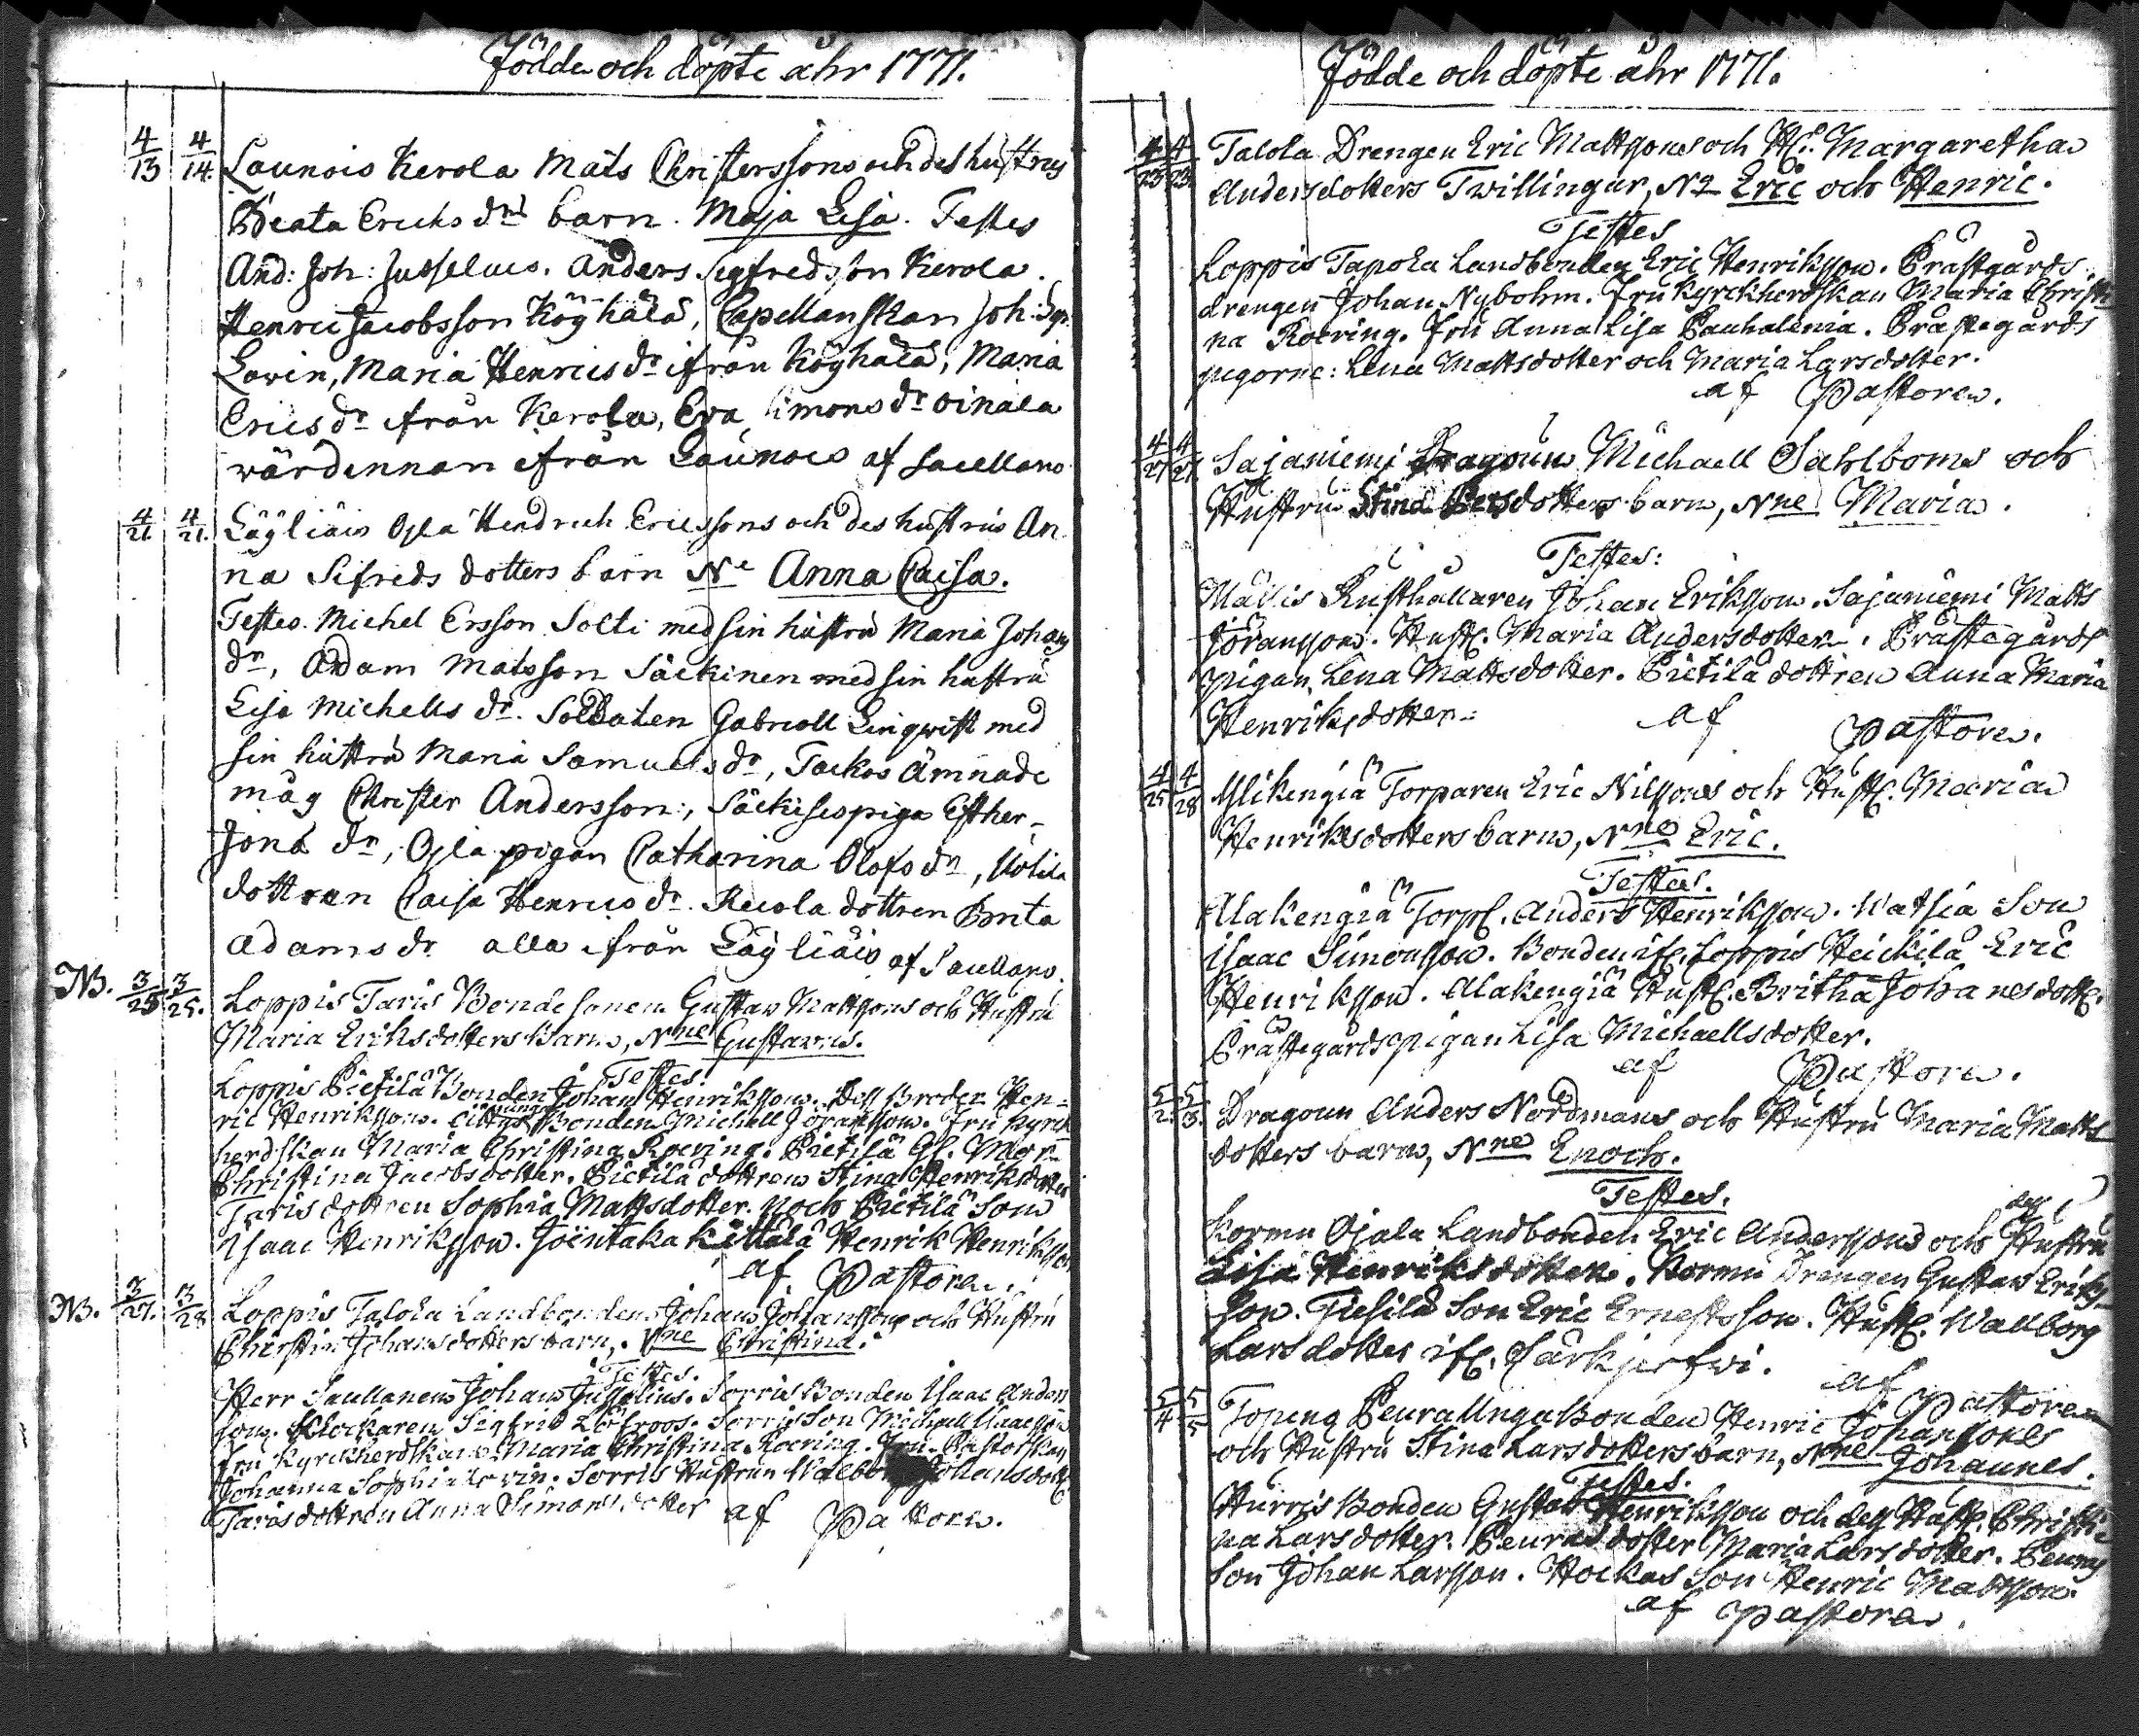 Födde och döpte åhr 1771.
4/13 4/14 Launois Kerola Mats Christerssons och des hustrus
Beata Ericks drs barn. Maja Lisa. Testes
And: Joh: Jusselius. Anders Segfredsson Kerola.
Henric Jacobsson Köghälä, Capellanskan Joh: Soph:
Lovin, Maria Henrics dr ifrån Köghälä, Maria
Erics dr ifrån Kerola, Eva Simons dr Oinala
wärdinnan ifrån Launois af Sacellano
4/21. 4/21. Läyliäis Ojla Hendrich Ericssons och des hustrus An
na Sifreds dotters barn Ne Anna Caisa.
Testes. Michel Ersson Solti med sin hustru Maria Johans
dr, Adam Matsson Säckinen med sin hustru
Lisa Michells dr. Soldaten Gabriell Linqwist med
sin hustru Maria Samuels dr, Tackos ämnade
måg Christer Andersson:, Säckisespiga Esther
Jona dr, Ojla pigan Catharina Olofs dr,
dottren Caisa Henrics dr. dottren Brita
Adams dr alla ifrån Läyliäis af Sacellano.
NB. 3/25 3/25. Loppis Taris Bonde sonen Gustav Mattsons och Hustru
Maria Eriksdotters Barn, Nne Gustavus.
Testes.
Loppis Pietilä Bonden Johan Henriksson. Dess Broder Hen-
ric Henriksson. Bonden Michell Göransson. Fru Kyrck
herdskan Maria Christina Roering. Pietilä Gl. Mor
Christina Jacobsdotter. Pietilä dottren Stina Henriksdotter
Taris dottren Sophia Mattsdotter. Noch Pietilä Son
Isaac Henriksson. Joentaka Kittälä Henrik Henriksson
af Pastore.
NB. 3/27. 3/28 Loppis Talola Landbondens Johan Johanssons och Hustru
Chirstin Johansdotters barn, Nne Christina.
Testes.
Herr Sacellanen Johan Jusselius. Sorris Bonden Isaac Anders
son. Klockaren Sigfrid Löfroos. Sorris Son Michael Isaacsson
Fru Kyrckherdskan Maria Christina Roering. Fru Pastorskan
Johanna Sophia Lovin. Sorris Hustrun Walborg Johansdotter
Taris dottren Anna Simonsdotter af Pastore.
Födde och döpte åhr 1771.
4/23 4/23. Talola Drengen Eric Mattsons och H. Margaretha
Andersdotters Twillingar, Na Eric och Henric.
Testes
Loppis Tapola Landbonden Eric Henriksson. Prästgårds
drengen Johan Nybohm. Fru Kyrckherdskan Maria Christi
na Roering. Fru Anna Lisa Pauhalenia. Prästegårds
pigorne: Lena Mattsdotter och Maria Larsdotter.
af Pastore.
4/27 4/27. Sajaniemi Dragoun Michaell Sahlboms och
Hustru Stina Persdotters barn, Nne Maria.
Testes:
Mällis Rusthållaren Johan Eriksson. Sajaniemi Matts
Jöransson. Hust. Maria Andersdotter. Prästegårds
pigan Lena Mattsdotter. Pietilä dottren Anna Maria
Henriksdotter. af Pastore.
4/25 4/28 Ylikengiä Torparen Eric Nilssons och Hust. Maria
Henriksdotters barn, Nne Eric.
Testes.
Alakengiä Torp. Anders Henriksson. Watsia Son
Isaac Simonsson. Bonden if. Loppis Heickilä Eric
Henriksson. Alakengiä Hust. Britha Johanesdott.
Prästegårdspigan Lisa Michaellsdotter.
af Pastore.
5/2. 5/3. Dragoun Anders Nordmans och Hustru Maria Matts
dotters barn, Nne Enoch.
Testes.
Kormu Ojala Landbonden Eric Anderssons och dess Hustru
Lisa Henriksdotter. Kormu Drengen Gustav Eriks
son. Tiesilä Son Eric Ernestsson. Hust. Wallborg
Larsdotter if. Särkjerfwi. af Pastore
5/4 5/5 Topeno Peura Unga Bonden Henric Johanssons
och Hustru Stina Larsdotters barn, Nne Johannes.
Testes.
Hurris Bonden Gustav Henriksson och dess Hust. Christi
na Larsdotter. Peuras dotter Maria Larsdotter. Peuras
Son Johan Larsson. Hockas Son Henric Mattsson.
af Pastore.